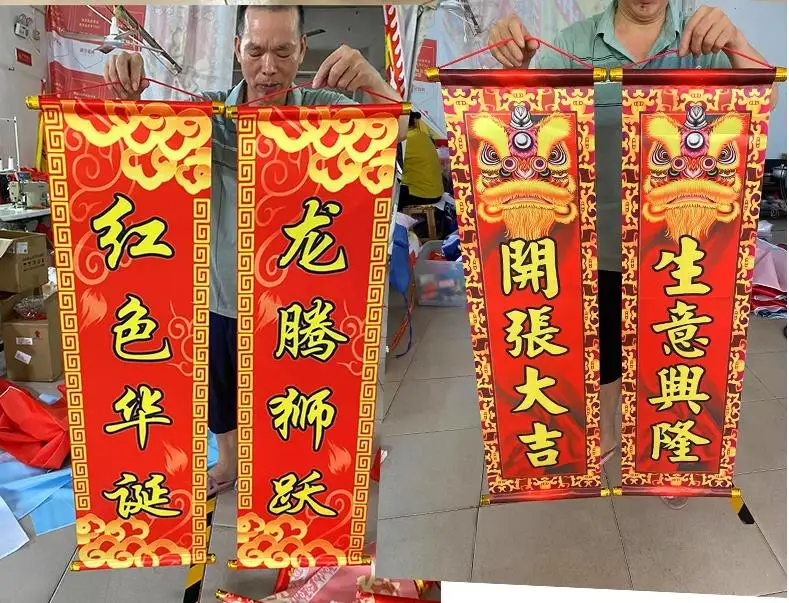 红色华诞
龙腾狮跃
開張大吉
生意興隆